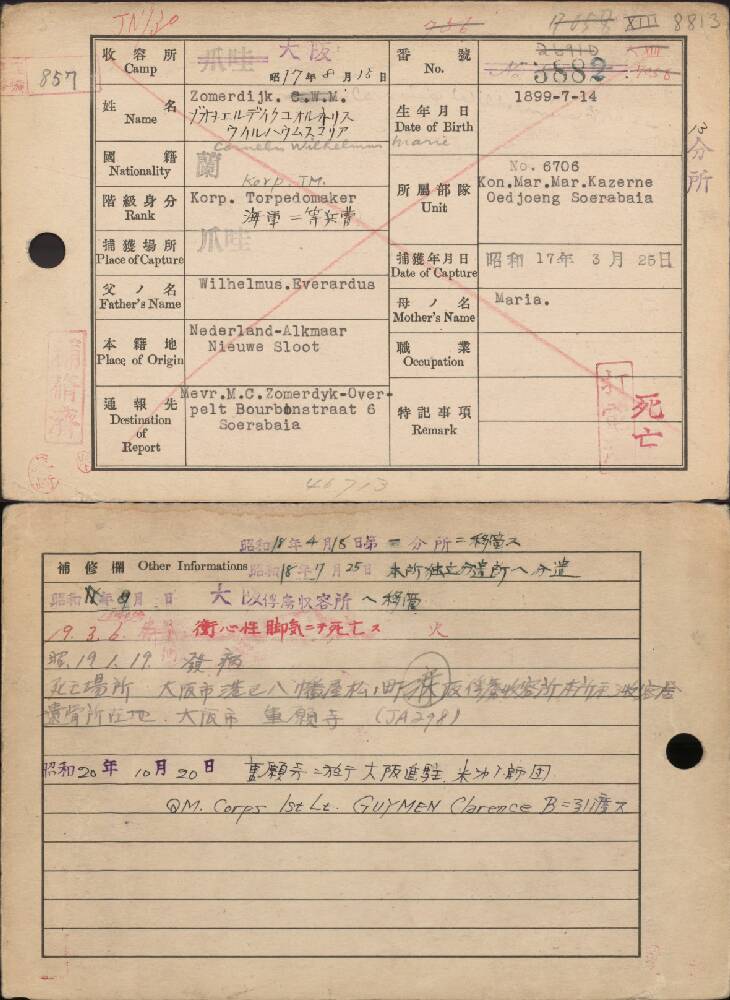 8813
857
収容所 Camp
爪哇 大阪
昭17年8月18日
番號 No.
3882
姓名 Name
Zomerdijk. C.W.M.
Cornelis Wilhelmus
生年月日 Date of Birth
1899-7-14
Marie
國籍 Nationality
蘭
階級身分 Rank
Korp. TM.
Korp. Torpedomaker
海軍二等兵曹
所屬部隊 Unit
No. 6706
Kon.Mar.Mar.Kazerne
Oedjoeng Soerabaia
分所
捕獲場所 Place of Capture
爪哇
捕獲年月日 Date of Capture
昭和 17年 3月 25日
父ノ名 Father's Name
Wilhelmus.Everardus
母ノ名 Mother's Name
Maria.
本籍地 Place of Origin
Nederland-Alkmaar
Nieuwe Sloot
職業 Occupation
通報先 Destination of Report
Mevr.M.C.Zomerdyk-Over-
pelt Bourbonstraat 6
Soerabaia
特記事項 Remark
死亡
46713
昭和18年4月18日第一分所ニ移管ス
補修欄 Other Informations
昭和18年7月25日 本所独立分遣所へ分遣
昭和 年 月 日 大阪俘虜収容所へ移管
19.3.6. 衝心性脚気ニテ死亡ス
昭.19.1.19. 發病
死亡場所 大阪市港区八幡屋松ノ町 大阪俘虜收容所本所
遺骨所在地 大阪市 (JA298)
昭和20年10月20日 大阪進駐 米
QM. Corps 1st Lt. GUYMEN Clarence B=引渡ス